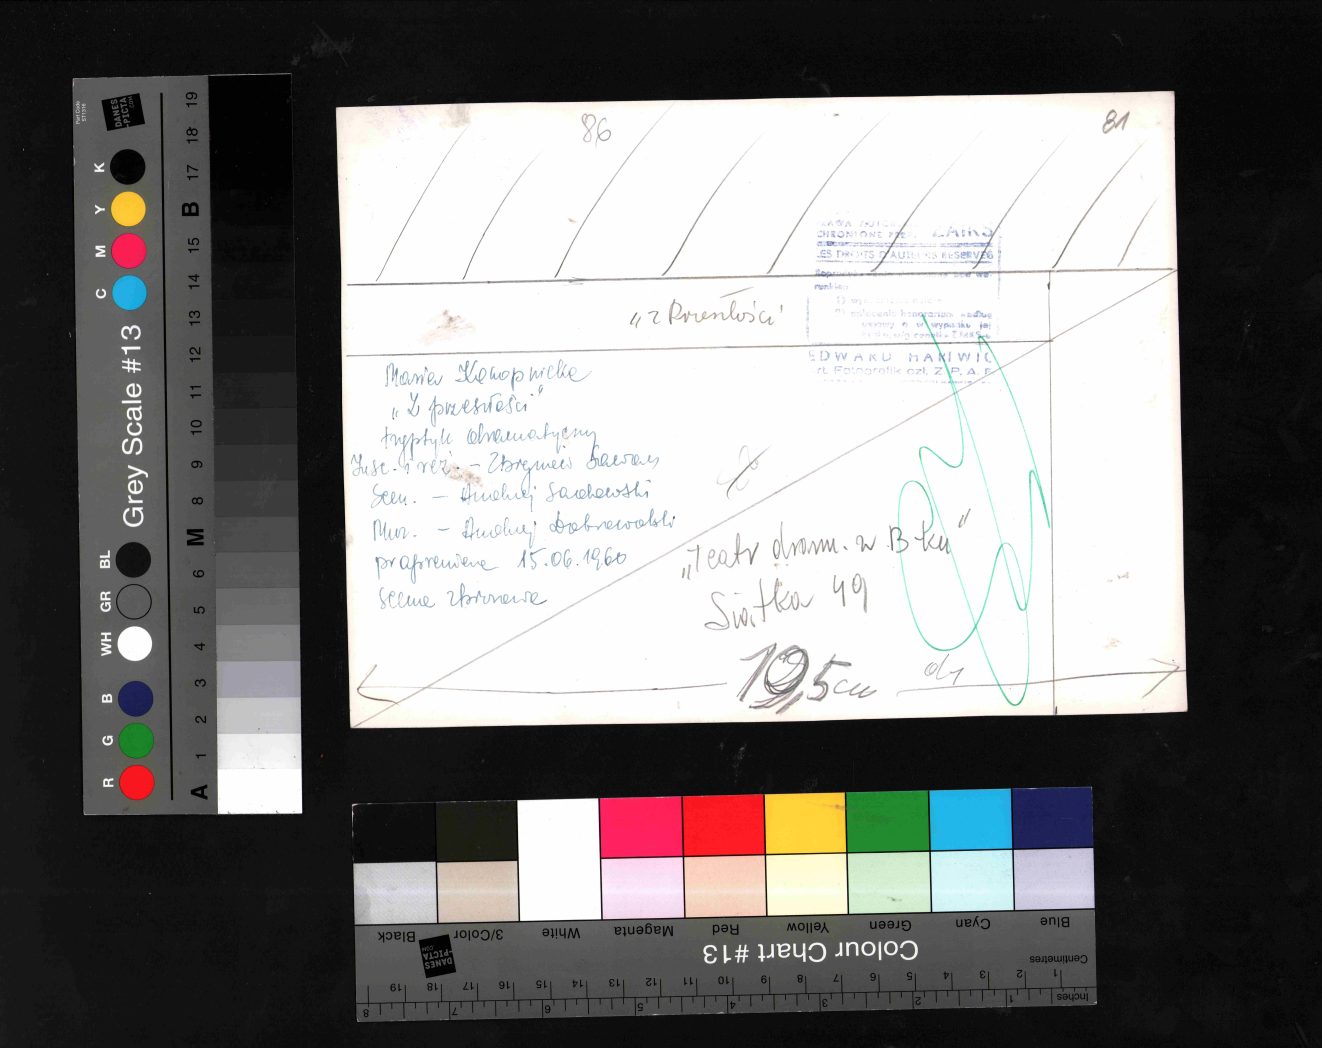 86
81
ZAIKS
CHRONIONE
LES DROITS D'AUTEURS RESERVES
EDWARD HARTWIG
Art. Fotografik czł. Z. P. A. F.
„z Przeszłości"
Maria Konopnicka
„Z przeszłości"
tryptyk dramatyczny
Insc. i reż. – Zbigniew Sawan
Scen. – Andrzej Sadowski
Muz. – Andrzej Dobrowolski
prapremiera 15.06.1960
scena zbiorowa
„Teatr dram. w B-ku"
Siatka 49
19,5 cm
Part Code
DANES
-PICTA
.COM
Grey Scale #13
K
Y
M
C
BL
GR
WH
B
G
R
19
18
17
B
15
14
13
12
11
10
9
8
M
6
5
4
3
2
1
A
Black
3/Color
White
Magenta
Red
Yellow
Green
Cyan
Blue
Colour Chart #13
DANES
-PICTA
.COM
Centimetres
19 18 17 16 15 14 13 12 11 10 9 8 7 6 5 4 3 2 1
8 7 6 5 4 3 2 1 Inches